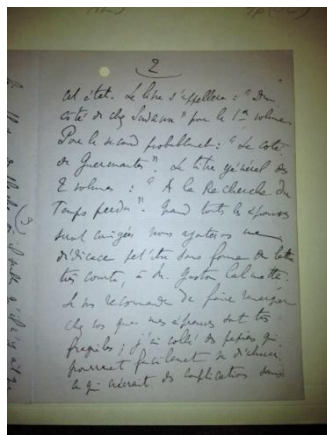 2
cet état. Le livre s'appellera : "Du
côté de chez Swann" pour le 1er volume.
Pour le second probablement : "Le Côté
de Guermantes". Le titre général des
2 volumes : "A la Recherche du
Temps perdu". Quand toutes les épreuves
seront corrigées nous ajouterons une
dédicace peut'être sous forme de lettre
très courte, à M. Gaston Calmette.
Je vous recommande de faire remarquer
chez vous que mes épreuves sont très
fragiles ; j'ai collé des papiers qui
pourraient facilement se déchirer
ce qui créerait des complications